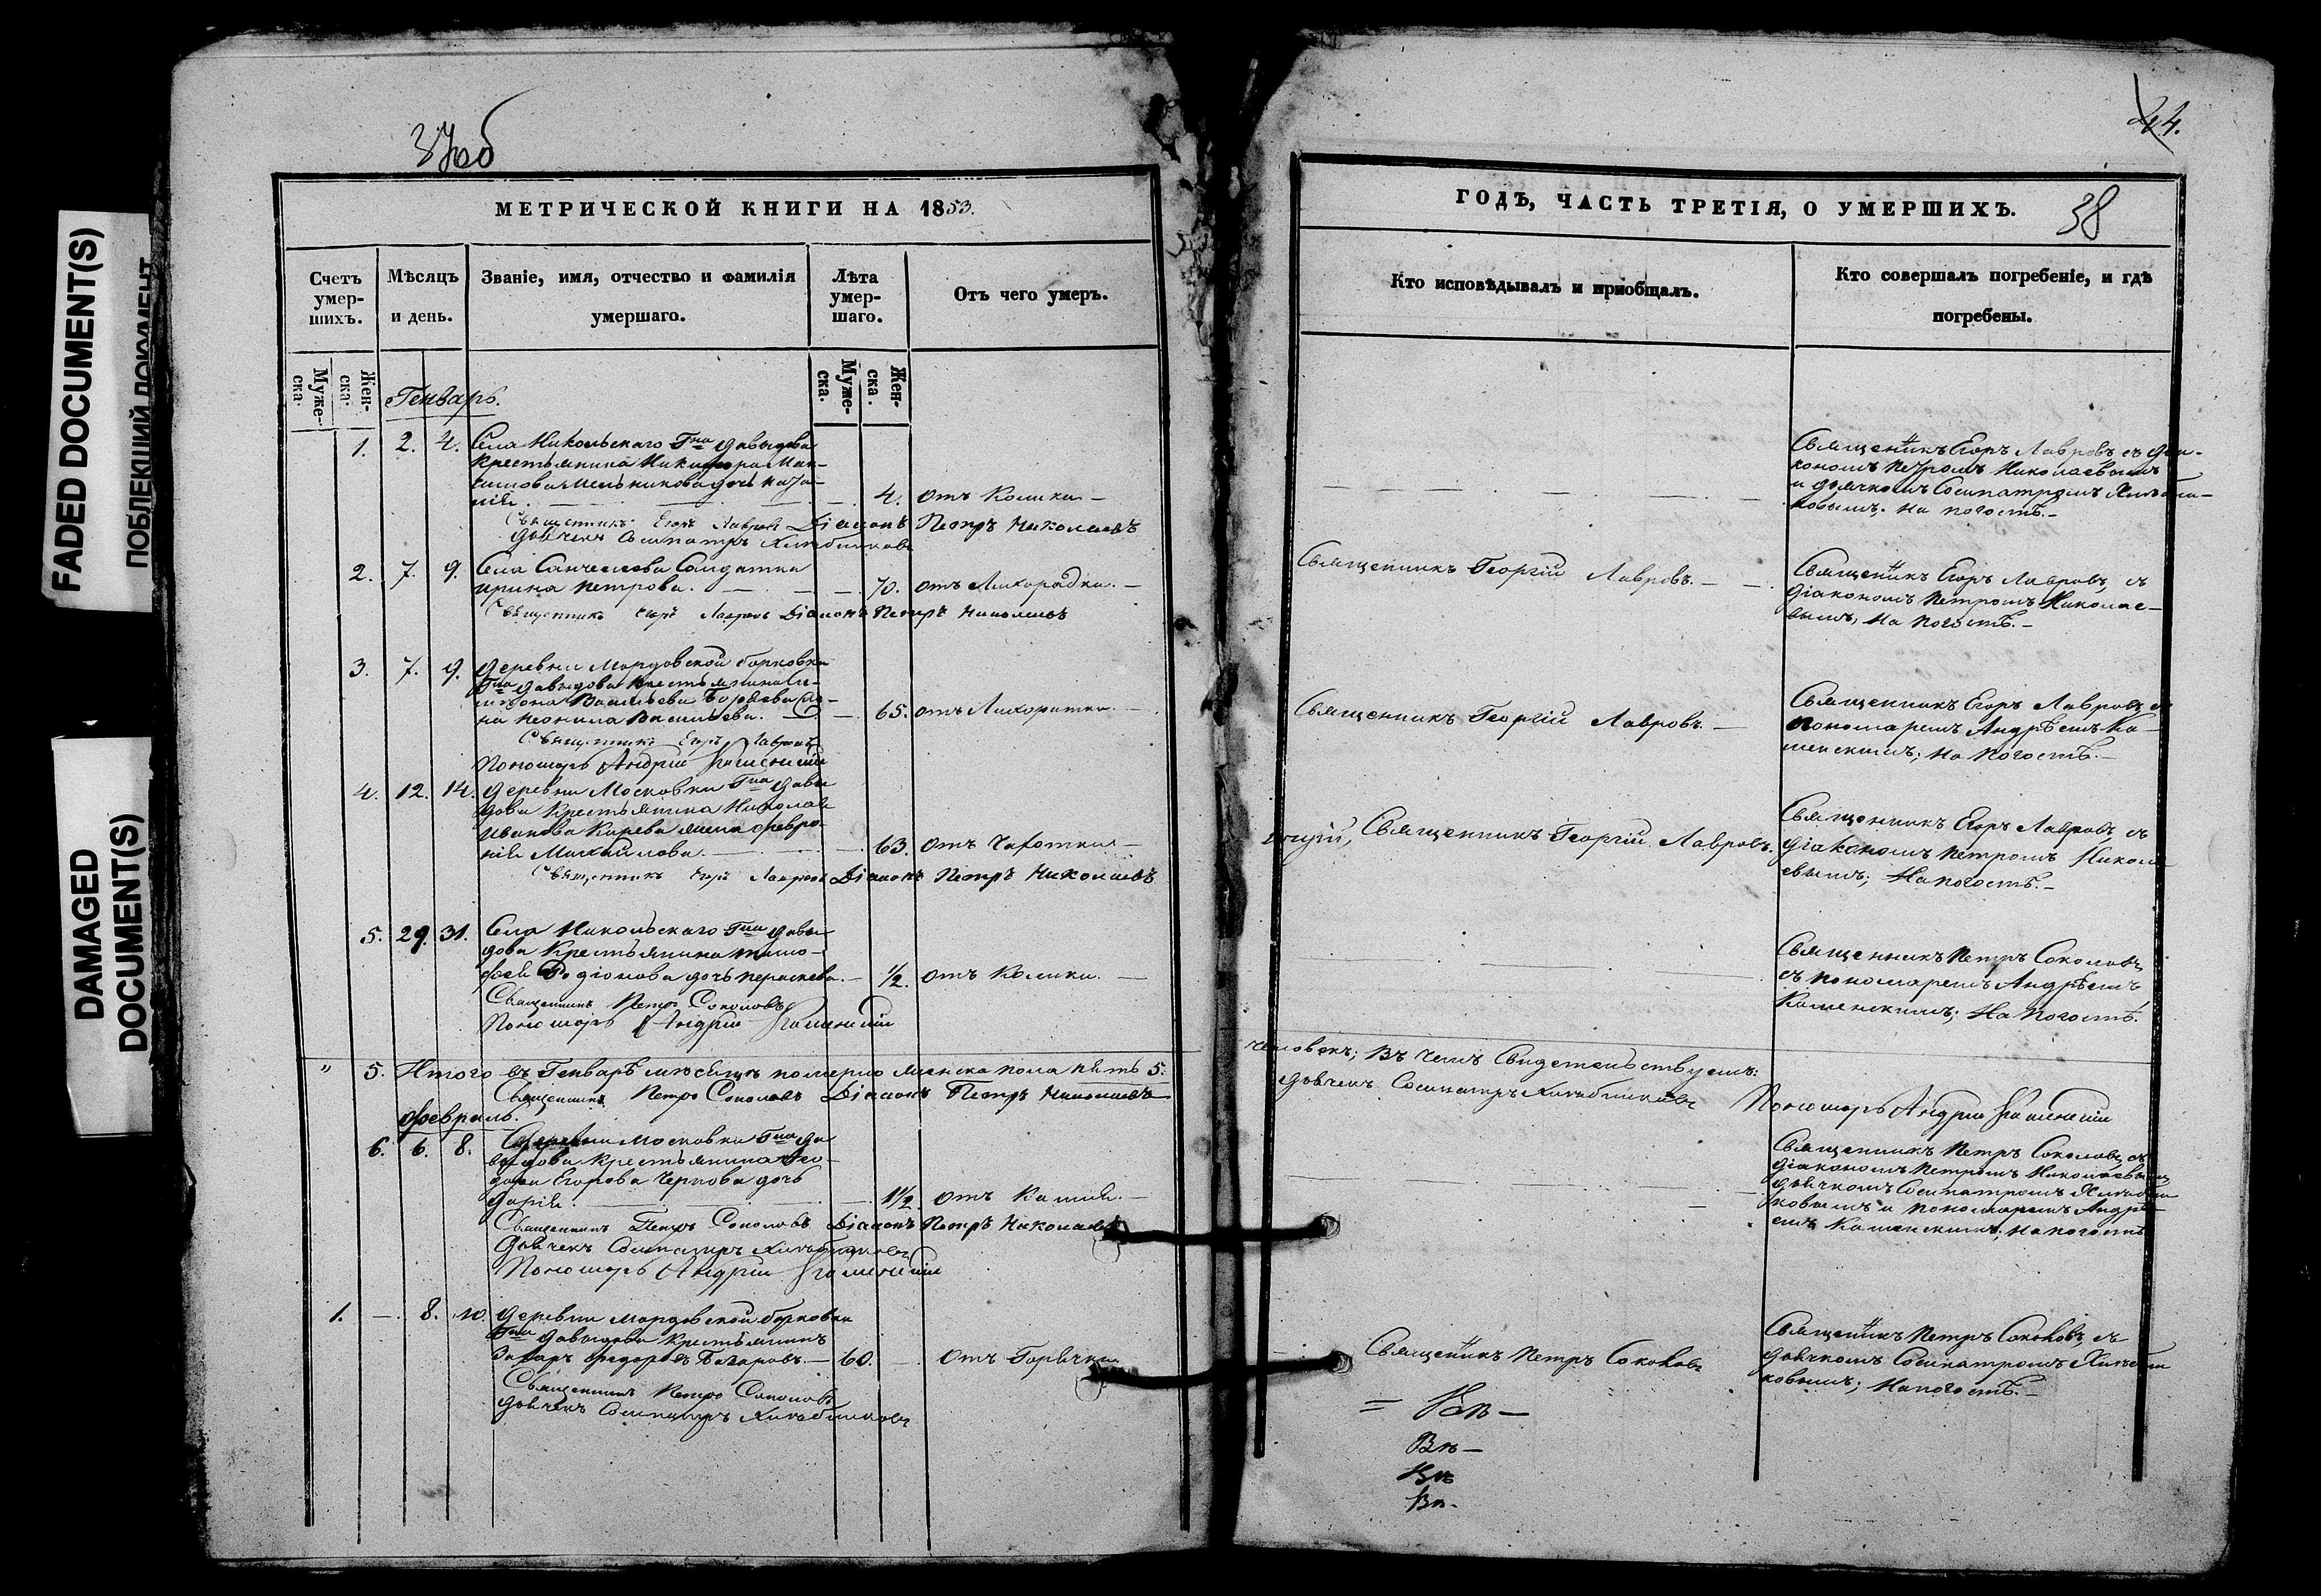 FADED DOCUMENT(S)
ПОБЛЕКШИЙ ДОКУМЕНТ
DAMAGED
DOCUMENT(S)
37об
МЕТРИЧЕСКОЙ КНИГИ НА 1853.
Счетъ умер-шихъ.
Мѣсяцъ и день.
Званіе, имя, отчество и фамилія умершаго.
Лѣта умер-шаго.
Отъ чего умеръ.
Муже-ска.
Жен-ска.
Муже-ска.
Жен-ска.
Генварь.
1. 2. 4. Села Никольскаго Гна Давыдова
крестьянина Никифора Мак-
симова Мельникова дочь
4. отъ Колики
Священникъ Егоръ Лавровъ Діаконъ Петръ Николаевъ
Дьячекъ Сосипатръ
2. 7. 9. Села Солдатка
Ирина Петрова. 70. отъ Лихорадки.
Священникъ Егоръ Лавровъ Діаконъ Петръ Николаевъ
3. 7. 9. Деревни Мордовской Борковки
Гна Давыдова крестьянина Си-
Васильева
на Неонила Васильева. 65. отъ Лихоратки.
Священникъ Егоръ Лавровъ
Пономарь Андрей Каменскій
4. 12. 14. Деревни Московки Гна Давы
дова крестьянина Николая
Иванова Карева жена Февро-
нія Михайлова. 63. отъ Чахотки
Священникъ Егоръ Лавровъ Діаконъ Петръ Николаевъ
5. 29. 31. Села Никольскаго Гна Давы
дова крестьянина Тимо-
фея Родіонова дочь Параскева. 1/2. отъ Колики.
Священникъ Петръ Соколовъ
Пономарь Андрей Каменскій
" 5. Итого въ Генварѣ мѣсяцѣ померло женска пола пять 5.
Священникъ Петръ Соколовъ Діаконъ Петръ Николаевъ
Февраль.
6. 6. 8. Деревни Московки Гна Да
выдова крестьянина Ѳео-
Егорова Чернова дочь
Дарія. 1 1/2. отъ
Священникъ Петръ Соколовъ Діаконъ Петръ Николаевъ
Дьячекъ Сосипатръ
Пономарь Андрей Каменскій
1. 8. 10. Деревни Мордовской Борковки
Гна Давыдова крестьянинъ
Захаръ Федоровъ 60. отъ Горячки
Священникъ Петръ Соколовъ
Дьячекъ Сосипатръ
44.
ГОДЪ, ЧАСТЬ ТРЕТІЯ, О УМЕРШИХЪ.
38
Кто исповѣдывалъ и приобщалъ.
Кто совершалъ погребеніе, и гдѣ погребены.
Священикъ Егоръ Лавровъ съ Діа-
кономъ Петромъ Николаевымъ
и дьячкомъ Сосипатромъ
на погостѣ.
Священникъ Георгій Лавровъ.
Священикъ Егоръ Лавровъ, съ
Діакономъ Петромъ Николае-
вымъ, на погостѣ.
Священникъ Георгій Лавровъ.
Священникъ Егоръ Лавровъ съ
Пономаремъ Андрѣемъ Ка-
менскимъ; на погостѣ.
Священникъ Георгій Лавровъ.
Священникъ Егоръ Лавровъ, съ
Діакономъ Петромъ Никола
евымъ; на погостѣ.
Священникъ Петръ Соколовъ,
съ Пономаремъ Андрѣемъ
Каменскимъ; на погостѣ.
человекъ; въ чемъ свидетельствуемъ:
Дьячекъ Сосипатръ Пономарь Андрей Каменскій
Священникъ Петръ Соколовъ, съ
Діакономъ Петромъ Николаевымъ
Дьячкомъ Сосипатромъ
и Пономаремъ Андрѣ-
емъ Каменскимъ; на погостѣ
Священикъ Петръ Соколовъ
Священикъ Петръ Соколовъ, съ
дьячкомъ Сосипатромъ
на погостѣ.